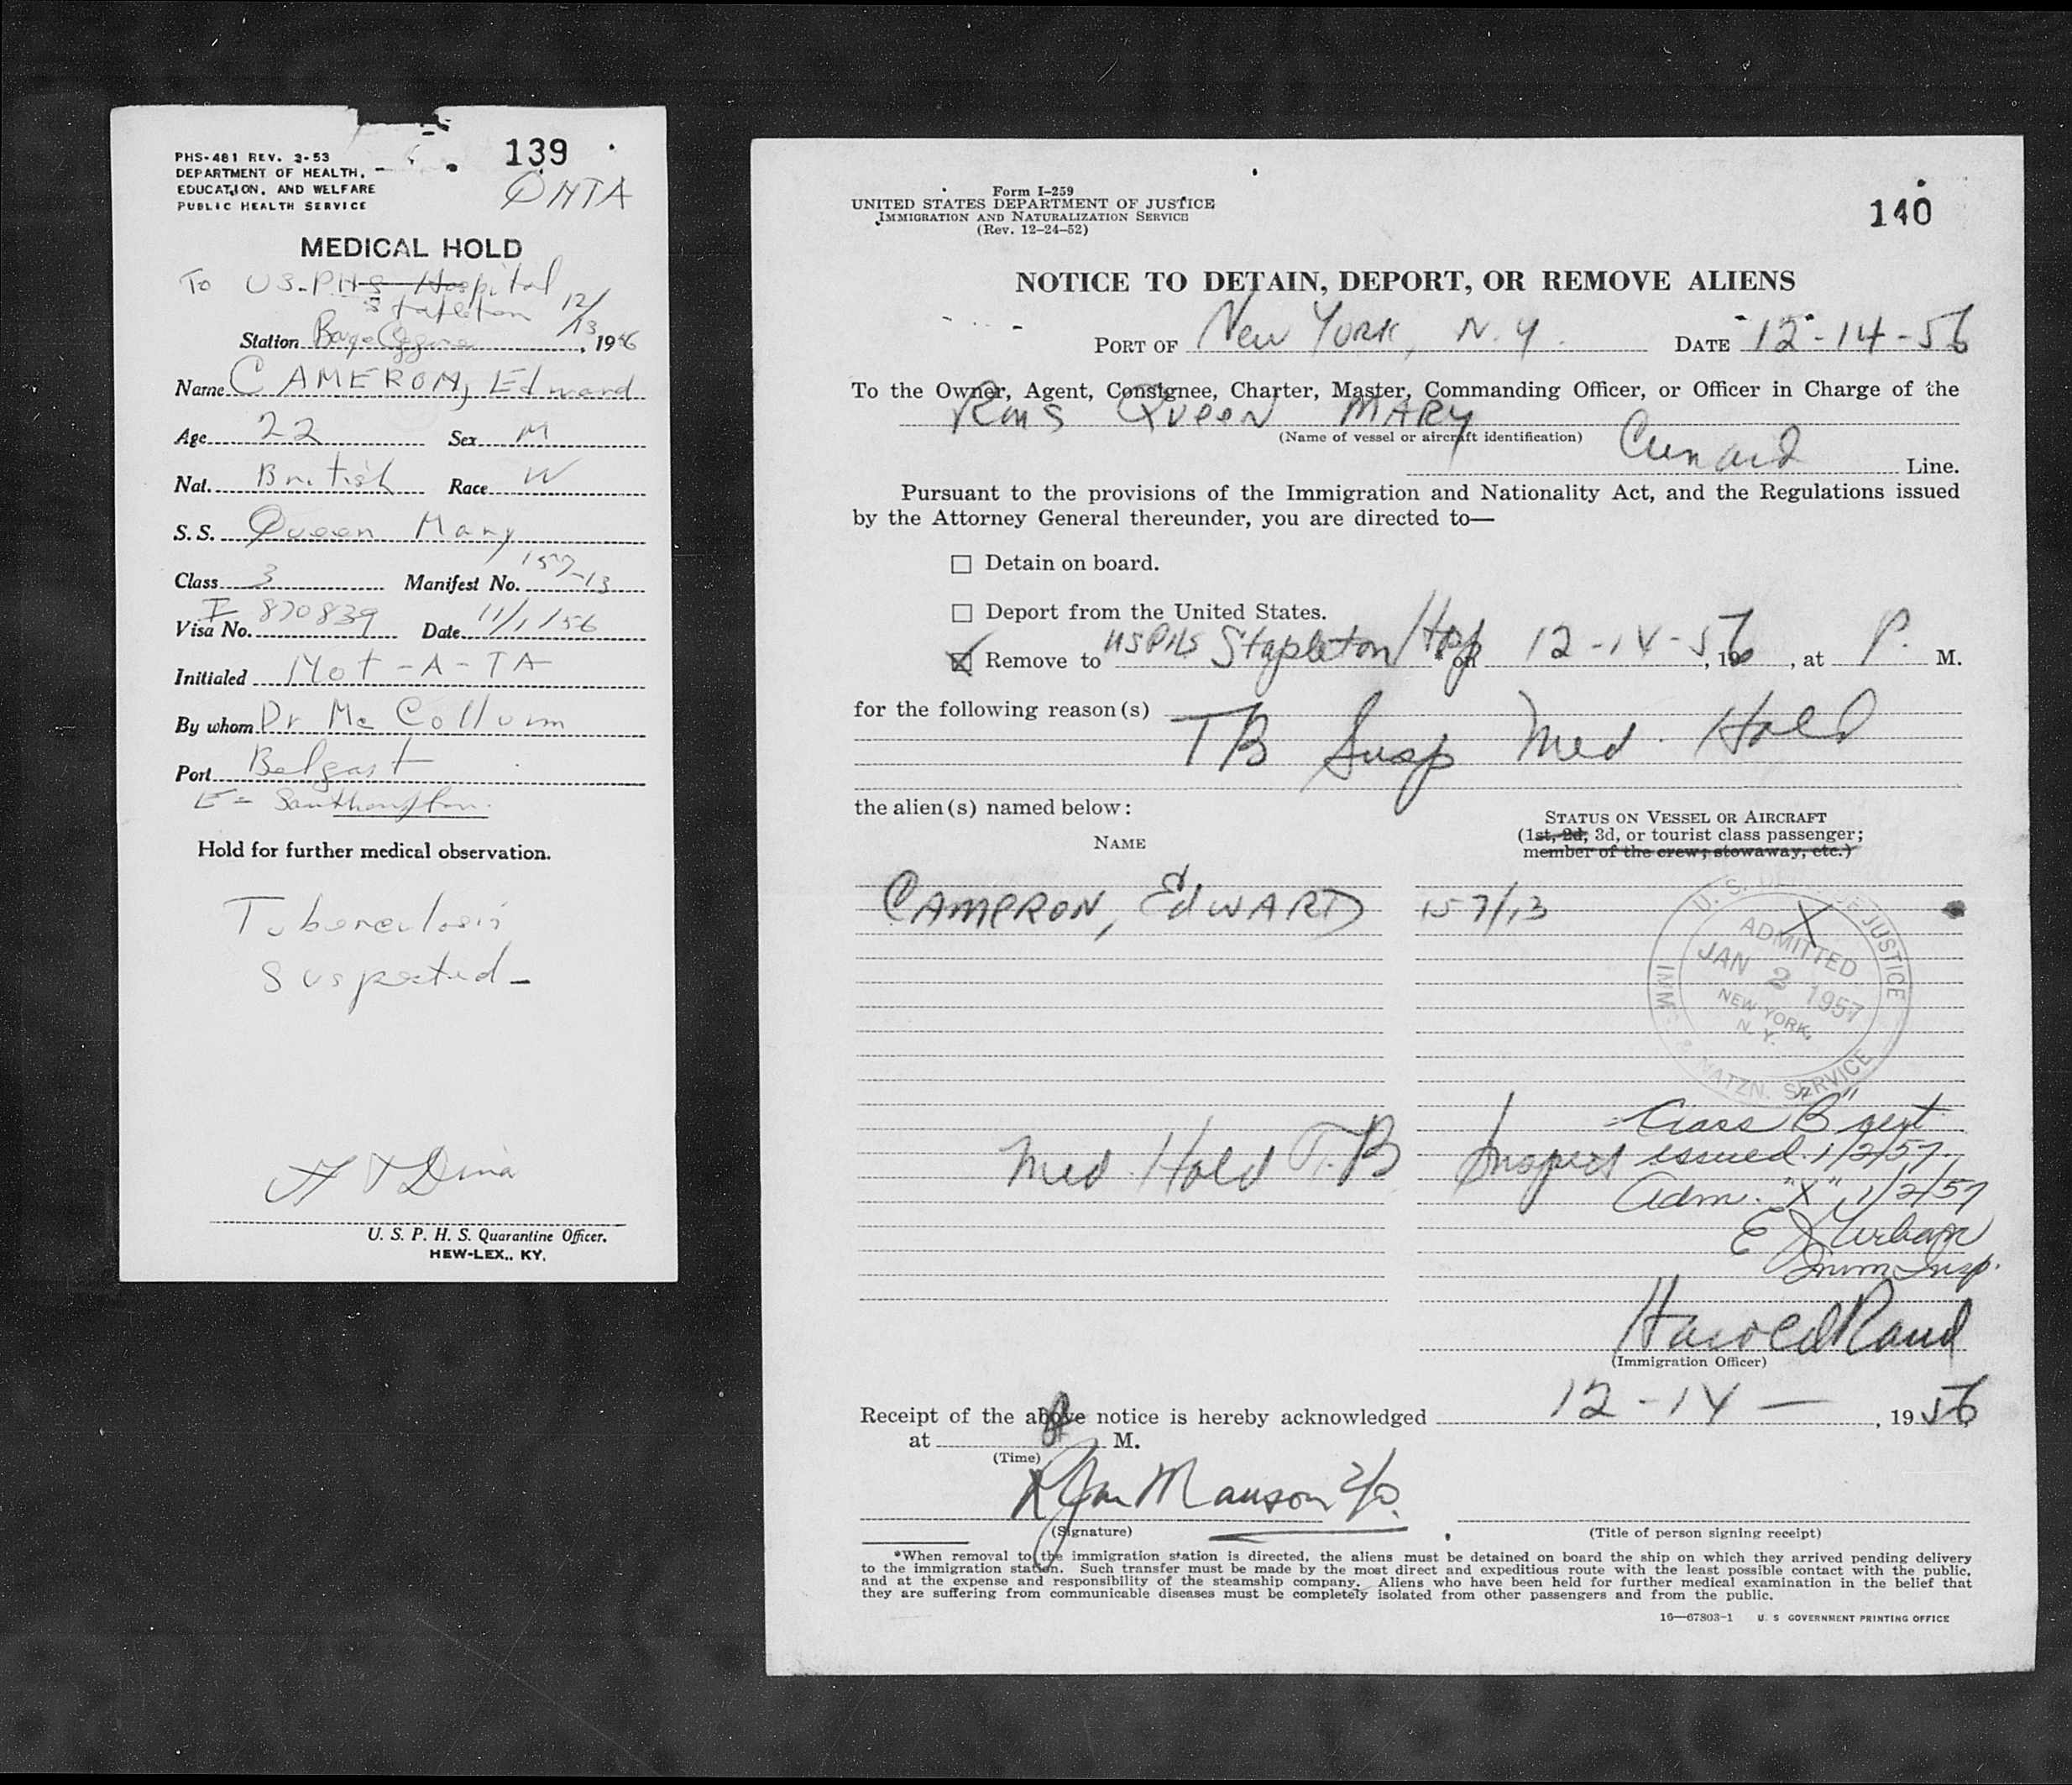 PHS-481 REV. 3-53
DEPARTMENT OF HEALTH,
EDUCATION, AND WELFARE
PUBLIC HEALTH SERVICE
139
MEDICAL HOLD
To US-PHS Hospital
Stapleton
12/13
Station , 1956
Name CAMERON, Edward
Age 22 Sex M
Nat. British Race W
S. S. Queen Mary
Class 3 Manifest No. 157-13
Visa No. I 870839 Date 11/1/56
Initialed Not-A-TA
By whom Dr Mc Collum
Port Belfast
E = Southampton.
Hold for further medical observation.
Tuberculosis
Suspected-
U. S. P. H. S. Quarantine Officer.
HEW-LEX., KY.
Form I-259
UNITED STATES DEPARTMENT OF JUSTICE
IMMIGRATION AND NATURALIZATION SERVICE
(Rev. 12-24-52)
140
NOTICE TO DETAIN, DEPORT, OR REMOVE ALIENS
PORT OF New York, N.Y. DATE 12-14-56
To the Owner, Agent, Consignee, Charter, Master, Commanding Officer, or Officer in Charge of the
RMS Queen MARY
(Name of vessel or aircraft identification)
Cunard Line.
Pursuant to the provisions of the Immigration and Nationality Act, and the Regulations issued
by the Attorney General thereunder, you are directed to—
Detain on board.
Deport from the United States.
Remove to USPHS Stapleton Hosp on 12-14-56, 19 , at P. M.
for the following reason(s)
TB Susp Med. Hold
the alien(s) named below:
NAME
STATUS ON VESSEL OR AIRCRAFT
(1st, 2d, 3d, or tourist class passenger;
member of the crew; stowaway, etc.)
CAMERON, EdWARD 157/13
X
U. S. DEPT. OF JUSTICE
ADMITTED
JAN 2 1957
NEW YORK,
N. Y.
IMM. & NATZN. SERVICE
Class "B" cert
issued 1/2/57
Med. Hold T.B Suspect
Adm. "X" 1/2/57
E J Urban
Imm Insp.
Harold Rand
(Immigration Officer)
Receipt of the above notice is hereby acknowledged 12-14- , 1956
at P M.
(Time)
Manson 2/o.
(Signature)
(Title of person signing receipt)
*When removal to the immigration station is directed, the aliens must be detained on board the ship on which they arrived pending delivery
to the immigration station. Such transfer must be made by the most direct and expeditious route with the least possible contact with the public,
and at the expense and responsibility of the steamship company. Aliens who have been held for further medical examination in the belief that
they are suffering from communicable diseases must be completely isolated from other passengers and from the public.
16—67803-1 U. S GOVERNMENT PRINTING OFFICE